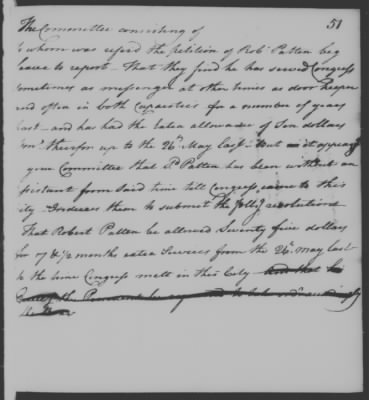 51
The Committee consisting of
to whom was referd the petition of Robt. Patten beg
leave to report – That they find he has served Congress
sometimes as messenger at other times as door keeper
and often in both Capacities for a number of years
past – and has had the extra allowance of Ten dollars
therefor up to the 26th May last – But it appearg
your Committee that Sd. Patten has been without an
sistant from said time till Congress came to this
ity – Induces them to submit the follg resolutions
That Robert Patten be allowed Seventy five dollars
for 7 & 1/2 months extra Services from the 26th May last
to the time Congress mett in this City and that
the